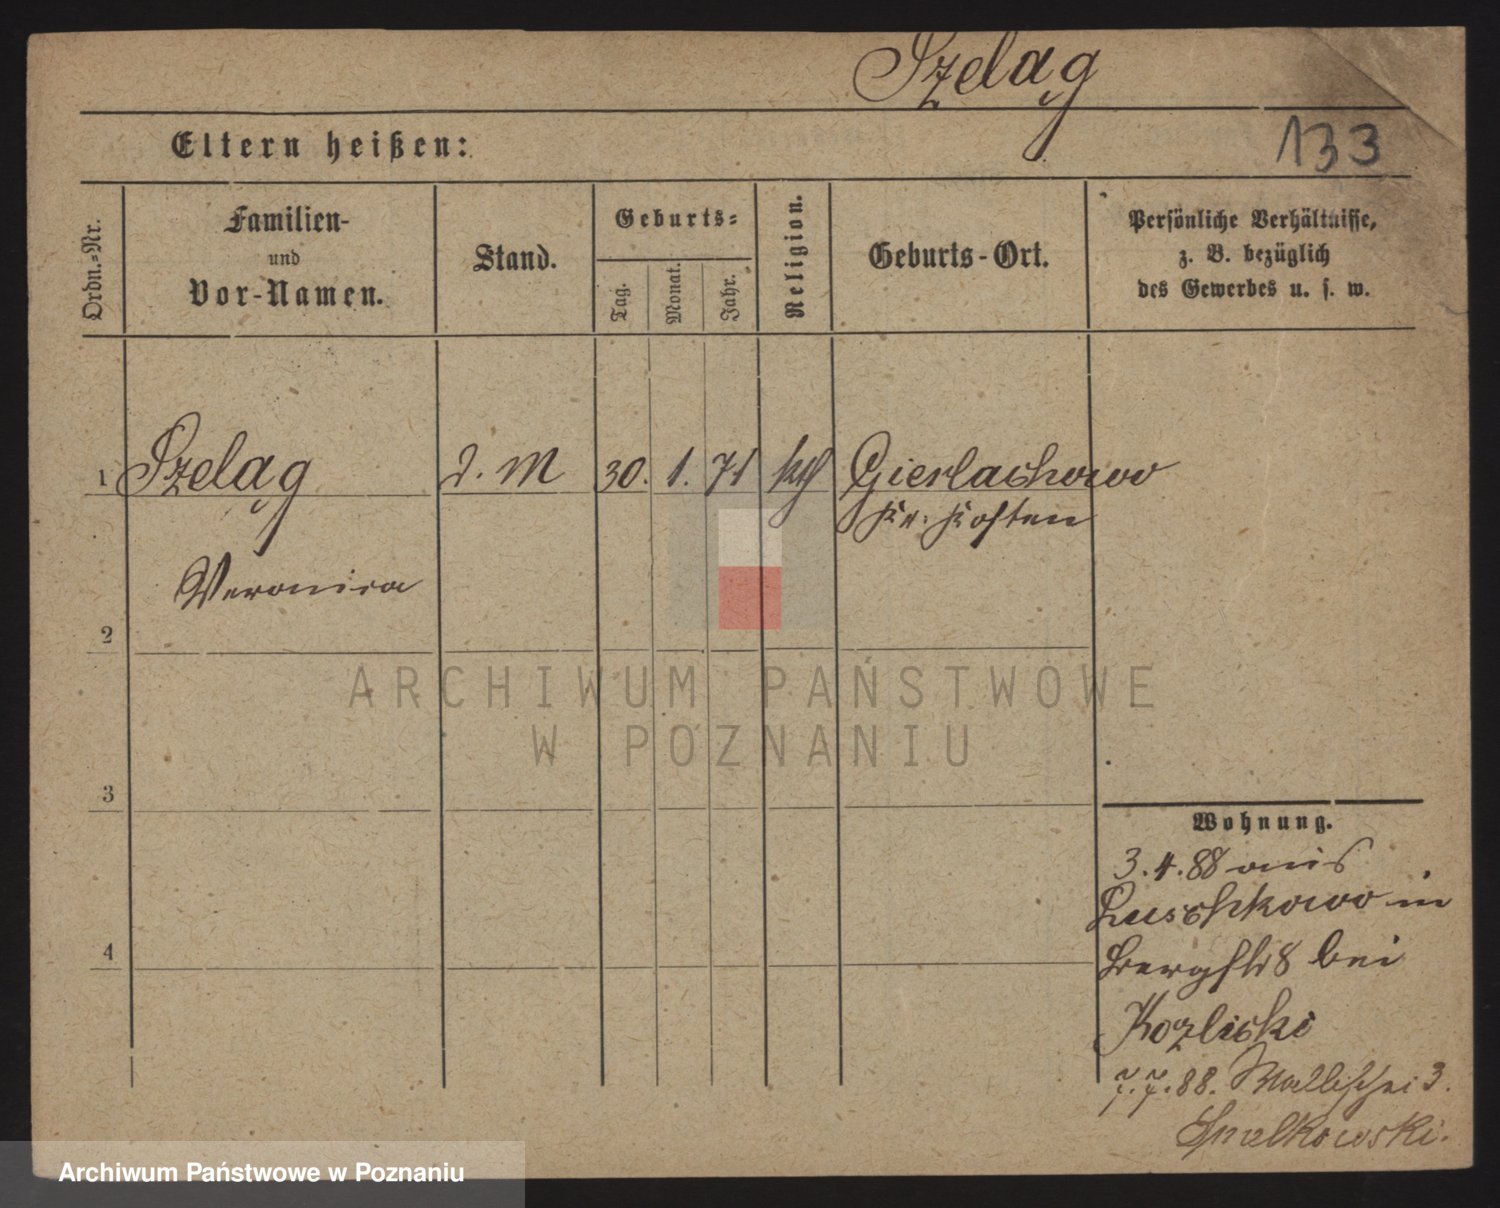 Szeląg
133
Eltern heißen:
Ordn.-Nr.
Familien-
und
Vor-Namen.
Stand.
Geburts-
Tag.
Monat.
Jahr.
Religion.
Geburts-Ort.
Persönliche Verhältnisse,
z. B. bezüglich
des Gewerbes u. s. w.
1 Szeląg d. M 30. 1. 71 kth Gierlachowo
Kr. Kosten
Veronica
2
ARCHIWUM PAŃSTWOWE
W POZNANIU
3
Wohnung.
3.4.88 aus
Luschkowo in
bei
4
Kozliski
7.7.88. Wallischei 3.
Archiwum Państwowe w Poznaniu